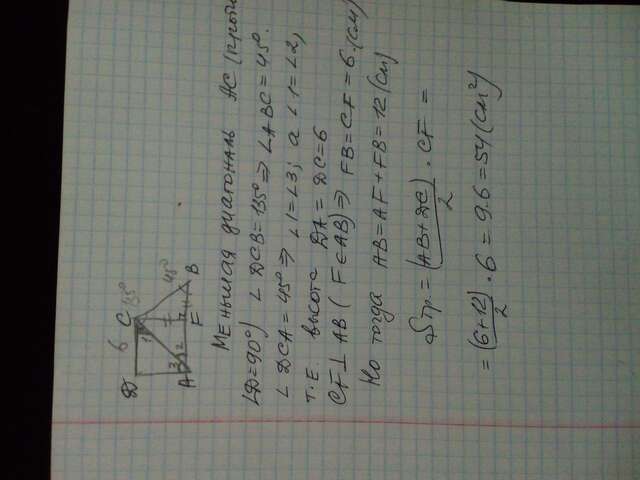 D 6 C 135°
1
45°
3 2
A F B
Меньшая диагональ AC (прот
∠D=90°) ∠DCB=135° ⇒ ∠ABC=45°.
∠DCA=45° ⇒ ∠1=∠3; а ∠1=∠2,
т.е. высота DA=DC=6
CF⊥AB (F∈AB) ⇒ FB=CF=6.(см)
Но тогда AB=AF+FB=12(см)
Sтр.=(AB+DC)/2 · CF =
=(6+12)/2 · 6=9·6=54(см²)